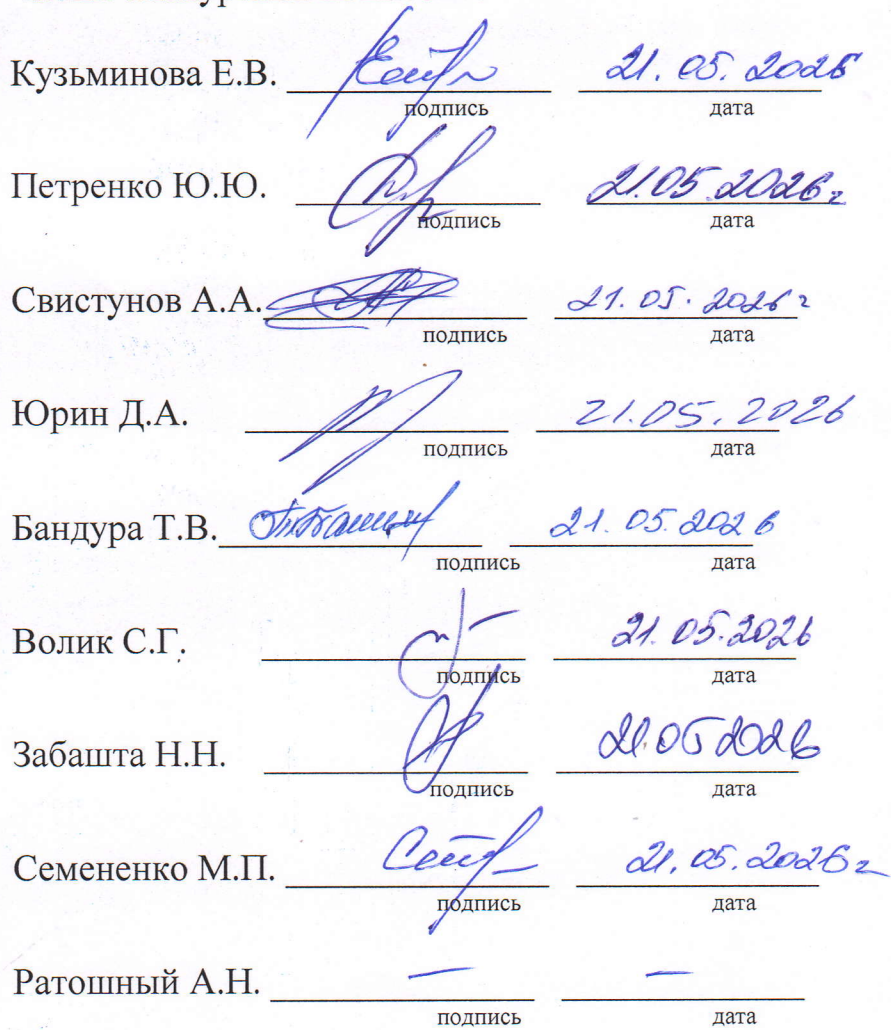 Кузьминова Е.В. 21.05.2026
подпись дата
Петренко Ю.Ю. 21.05.2026г
подпись дата
Свистунов А.А. 21.05.2026г
подпись дата
Юрин Д.А. 21.05.2026
подпись дата
Бандура Т.В. 21.05.2026
подпись дата
Волик С.Г. 21.05.2026
подпись дата
Забашта Н.Н. 21.05 2026
подпись дата
Семененко М.П. 21.05.2026г
подпись дата
Ратошный А.Н. — —
подпись дата